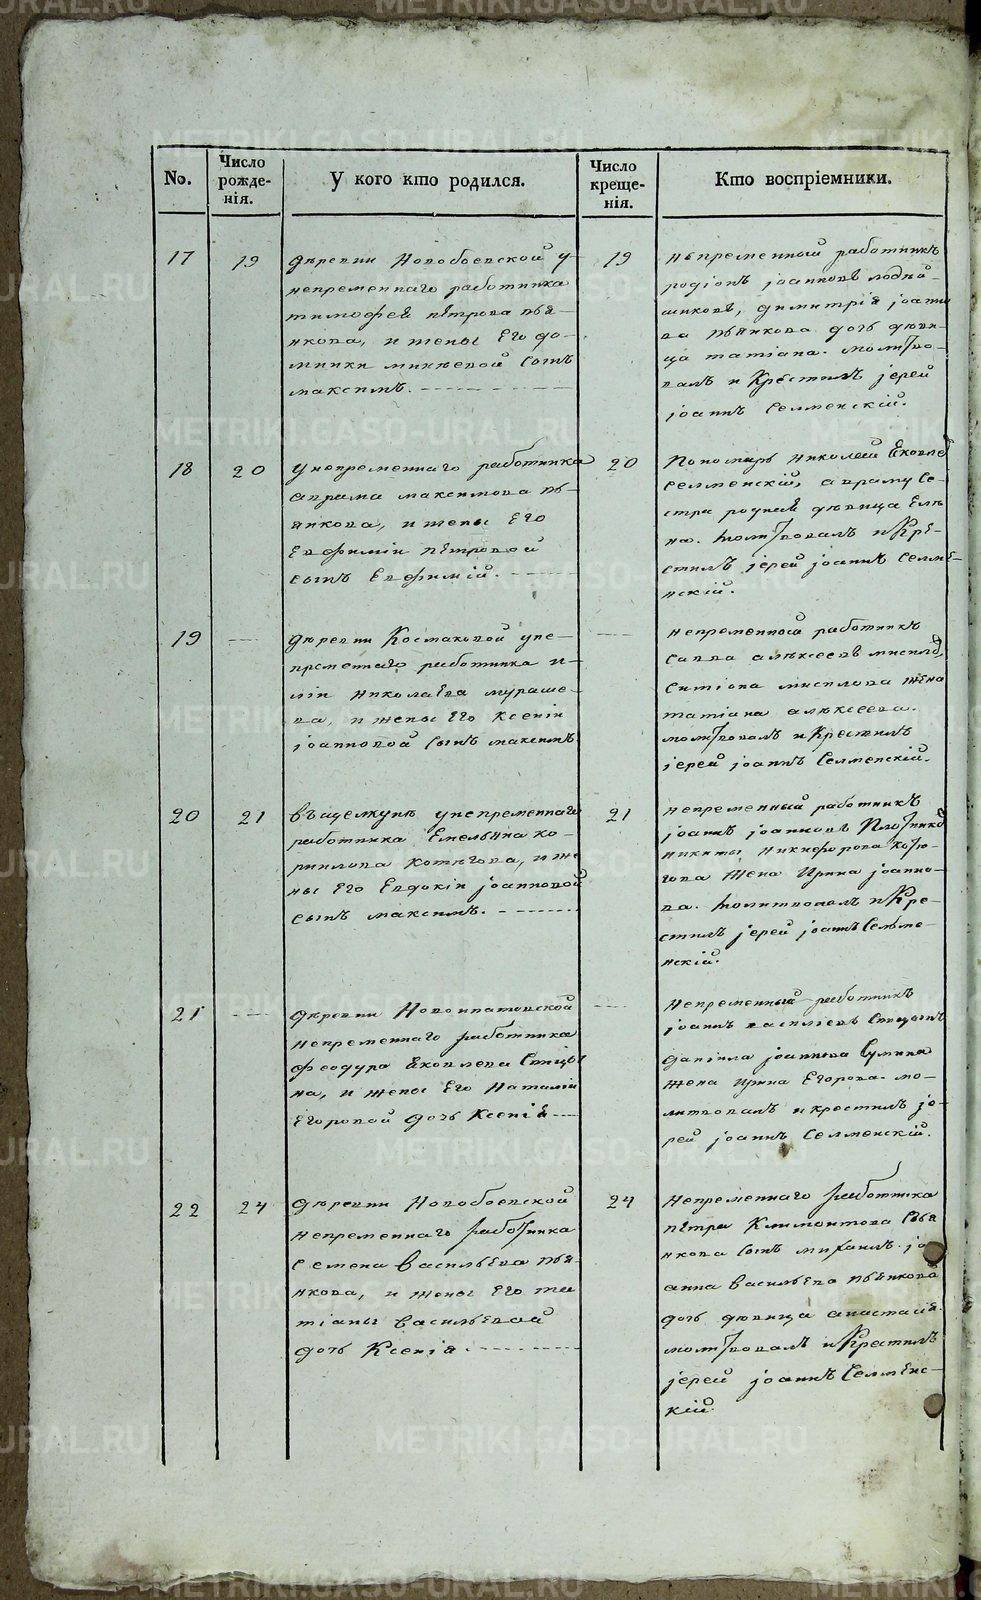 No.
Число рожде-
нія.
У кого кто родился.
Число креще-
нія.
Кто воспріемники.
17
19
деревни Новобоевской у
непременнаго работника
тимофея петрова пья-
нкова, и жены его до-
мники михеевой сынъ
максимъ.
19
непременный работникъ
родіонъ іоанновъ лодей-
щиковъ, димитрія іоанно
ва пьянкова дочь девы-
ца татіана. молитво-
валъ и Крестилъ іерей
іоаннъ Селменскій.
18
20
у непременнаго работника
аврама максимова пь-
янкова, и жены его
Евфиміи петровой
сынъ Евфимій.
20
Пономарь николай Яковлев
селменскій, авраму се-
стра родная девица еле
на. молитвовалъ и Кре-
стилъ іерей іоаннъ Селме-
нскій.
19
деревни Космаковой у не-
пременнаго работника и-
ліи николаева мураше-
ва, и жены его ксеніи
іоанновой сынъ максимъ.
непременной работникъ
савва алексеевъ
татіана алексеева.
молитвовалъ и Крестилъ
іерей іоаннъ Селменскій.
20
21
непременнаго
работника Емельяна ко-
рнилова котегова, и же
ны его Евдокіи іоанновой
сынъ максимъ.
21
непременный работникъ
іоаннъ іоанновъ Плотников
никиты никифорова коте-
гова жена Ирина іоанно-
ва. молитвовалъ и Кре-
стилъ іерей іоаннъ Селме-
нскій.
21
деревни Новоипатовской
непременнаго работника
феодура Яковлева Спицы
на, и жены его Наталіи
Егоровой дочь Ксенія
непременный работникъ
іоаннъ василіевъ Спицынъ
даніила іоаннова Сумина
жена ирина Егорова. мо-
литвовалъ и крестилъ іе-
рей іоаннъ Селменскій.
22
24
деревни Новобоевской
непременнаго работника
семена васильева пья-
нкова, и жены его та
тіаны васильевой
дочь Ксенія
24
непременнаго работника
петра Климонтова пья
нкова сынъ михаилъ. іо
анна васильева пьянкова
дочь девица анастасія.
молитвовалъ и Крестилъ
іерей іоаннъ Селменс-
кій.
METRIKI.GASO-URAL.RU